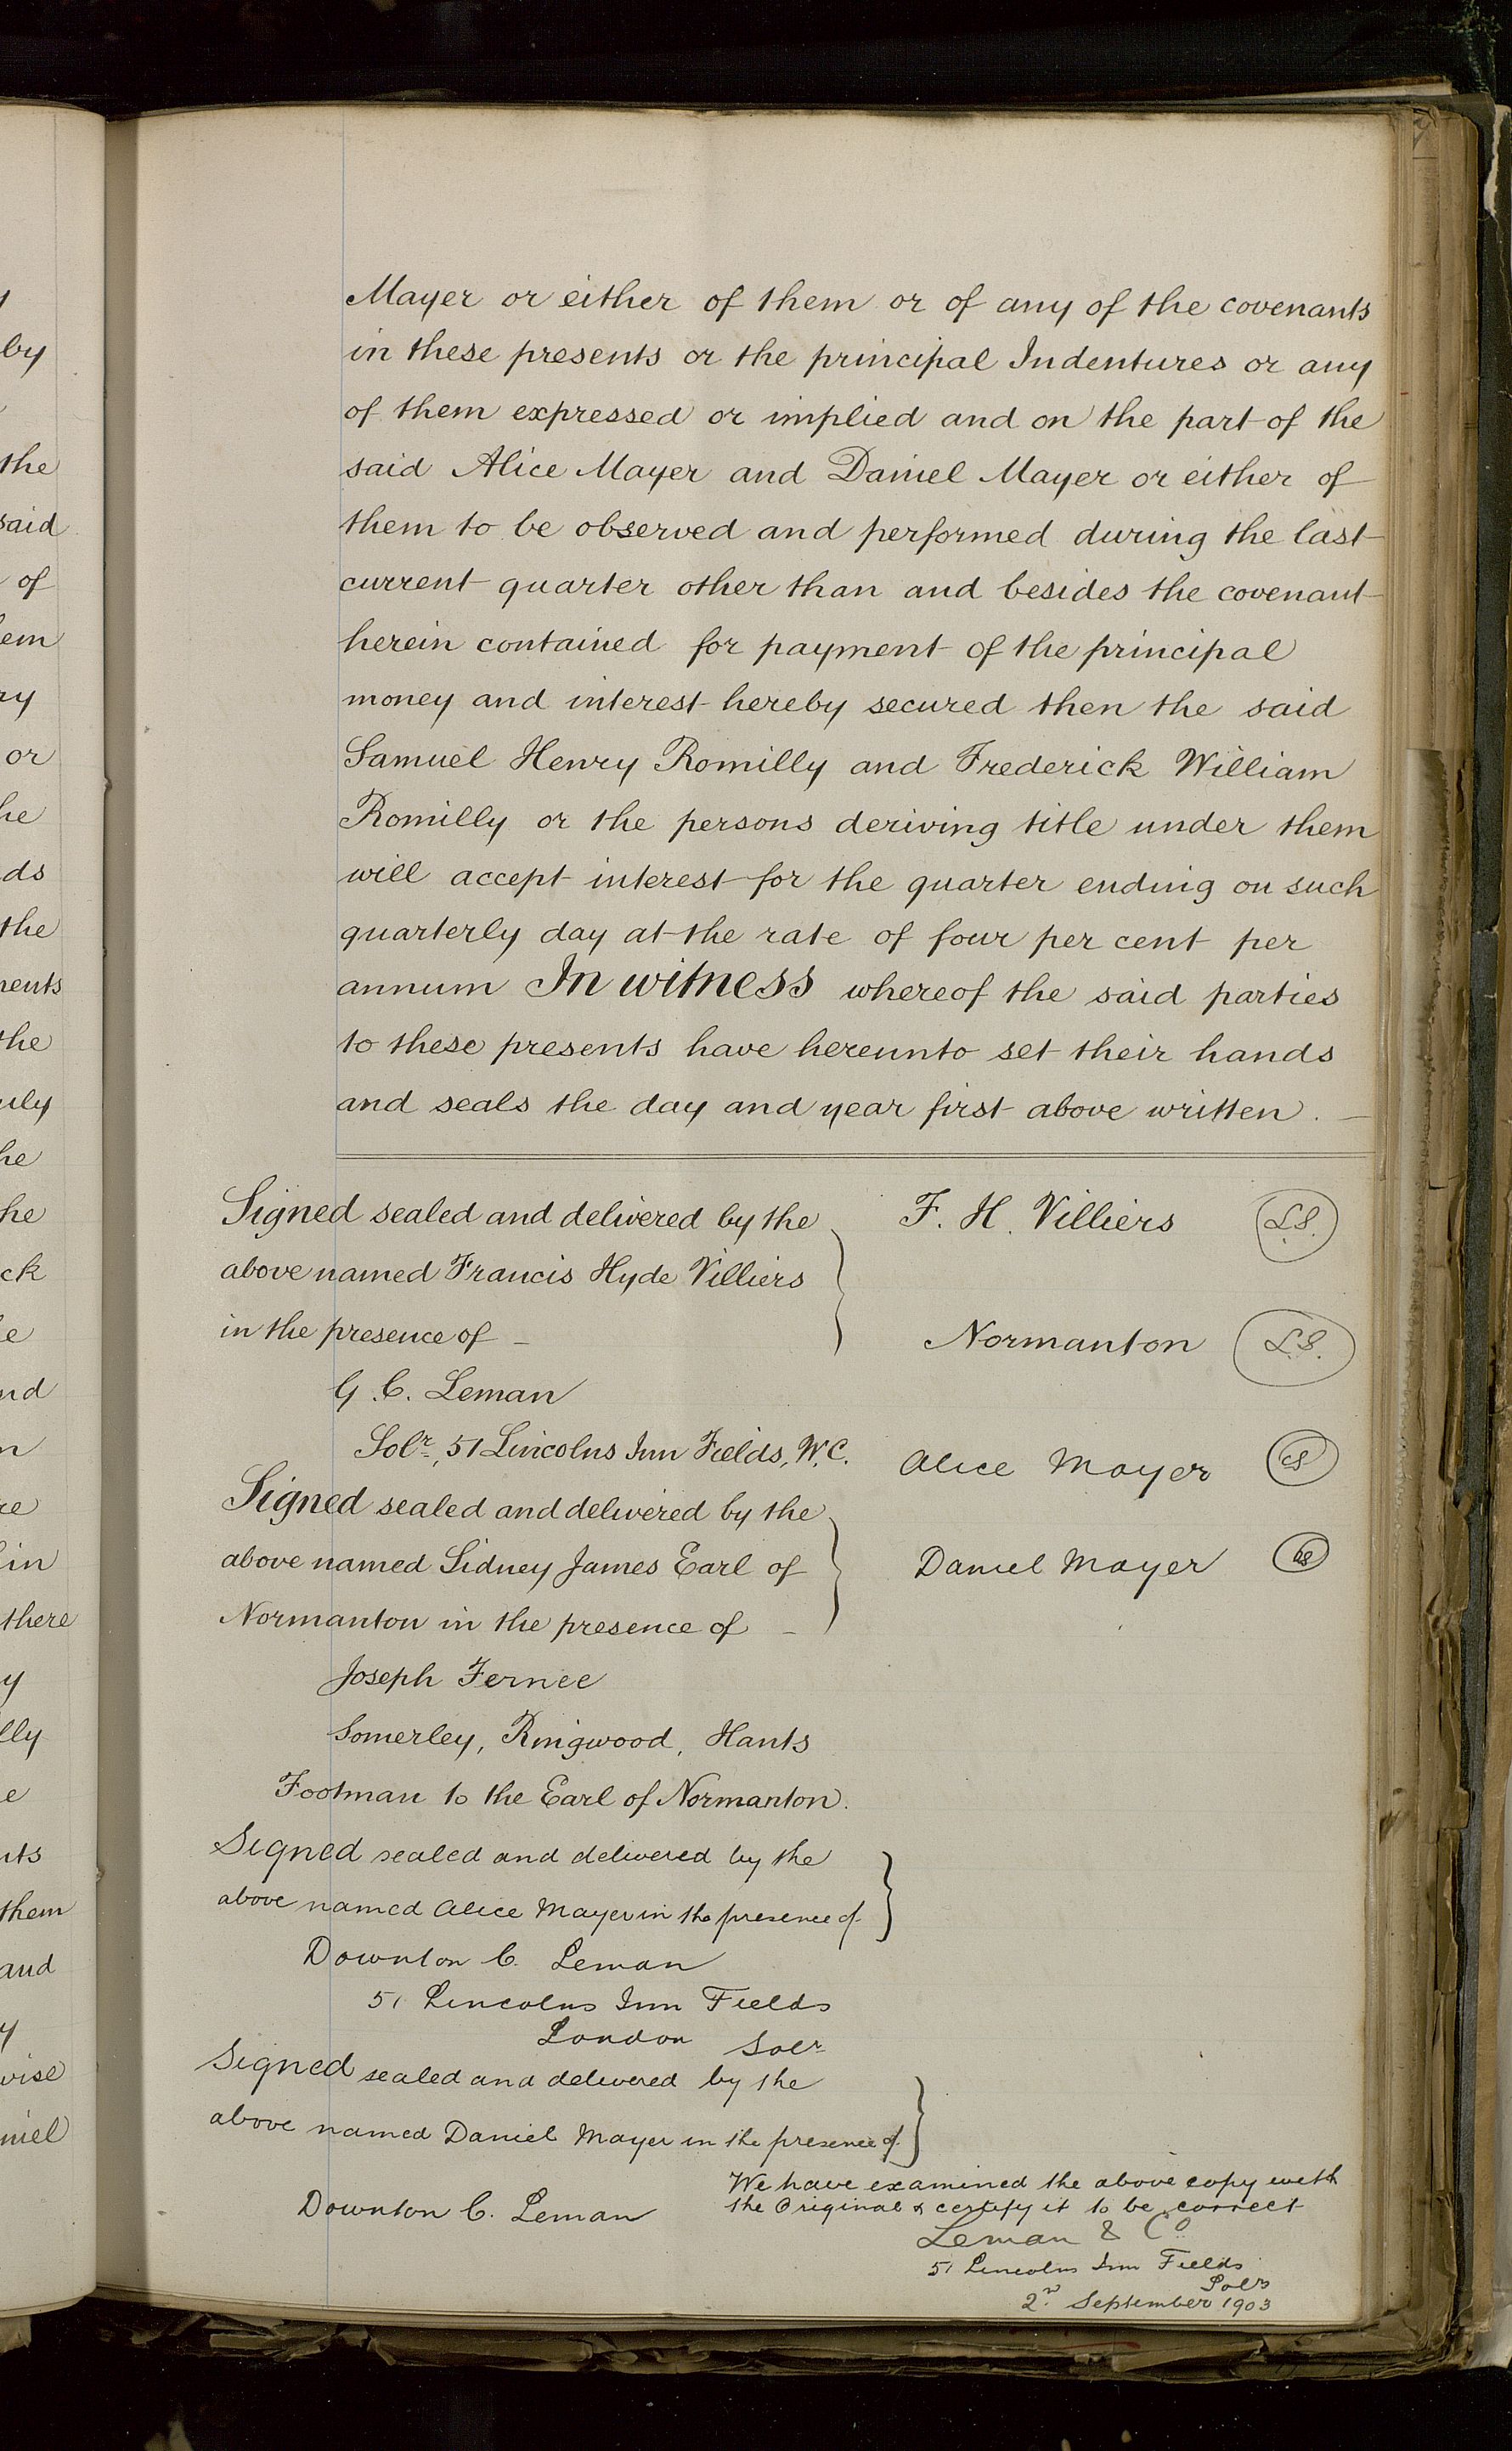 Mayer or either of them or of any of the covenants
in these presents or the principal Indentures or any
of them expressed or implied and on the part of the
said Alice Mayer and Daniel Mayer or either of
them to be observed and performed during the last
current quarter other than and besides the covenant
herein contained for payment of the principal
money and interest hereby secured then the said
Samuel Henry Romilly and Frederick William
Romilly or the persons deriving title under them
will accept interest for the quarter ending on such
quarterly day at the rate of four per cent per
annum In witness whereof the said parties
to these presents have hereunto set their hands
and seals the day and year first above written.
Signed sealed and delivered by the
above named Francis Hyde Villiers
in the presence of
G. C. Leman
Solr., 51 Lincolns Inn Fields, W.C.
F. H. Villiers L.S.
Normanton L.S.
Alice Mayer LS
Daniel Mayer LS
Signed sealed and delivered by the
above named Sidney James Earl of
Normanton in the presence of
Joseph Fernee
Somerley, Ringwood, Hants
Footman to the Earl of Normanton.
Signed sealed and delivered by the
above named Alice Mayer in the presence of
Downton C. Leman
51 Lincolns Inn Fields
London Solr
Signed sealed and delivered by the
above named Daniel Mayer in the presence of
Downton C. Leman
We have examined the above copy with
the Original & certify it to be correct
Leman & Co
51 Lincolns Inn Fields
Solrs
2nd September 1903
by
the
said
of
or
the
the
there
and
them